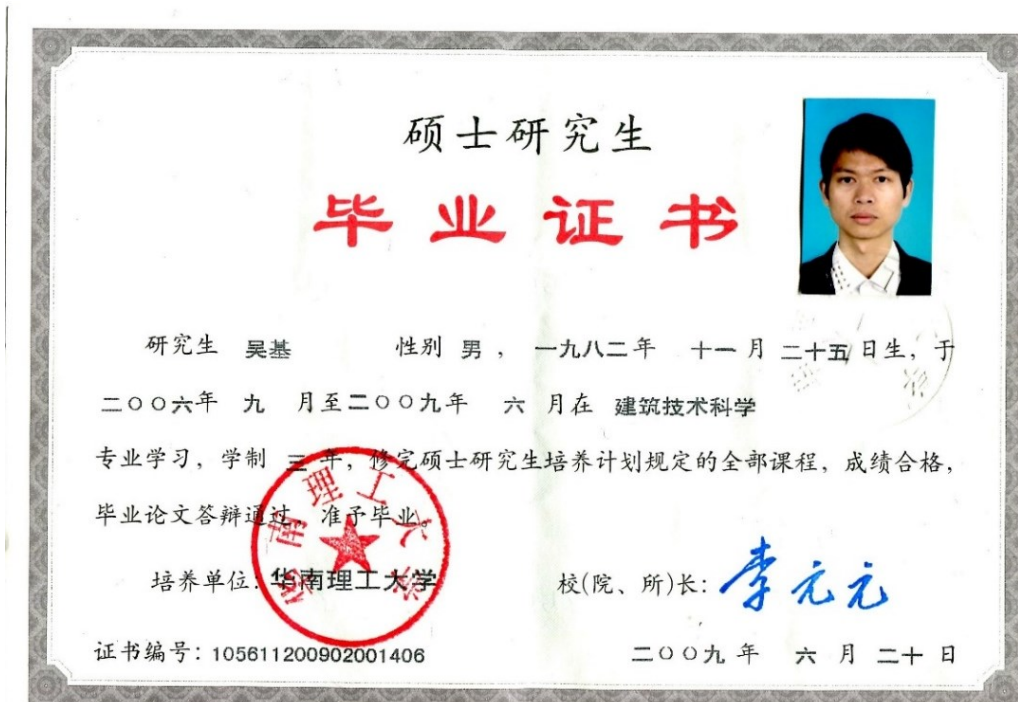 硕士研究生
毕业证书
研究生 吴基 性别 男 ， 一九八二年 十一月 二十五日生，于
二〇〇六年 九 月至二〇〇九年 六 月在 建筑技术科学
专业学习，学制 三 年，修完硕士研究生培养计划规定的全部课程，成绩合格，
毕业论文答辩通过，准予毕业。
华南理工大学
培养单位：华南理工大学 校(院、所)长：李元元
证书编号：105611200902001406 二〇〇九 年 六 月 二十 日